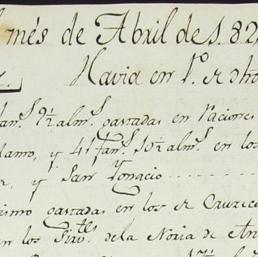 més de Abril de 1.82
Havia en 1º. de dho
fan.s 9½ alm.s gastadas en Raciones
lamo, y 41 fan.s 10½ alm.s en los
y San Ygnacio
ismo gastadas en los de Cruzece
en los Sirv.tes de la Noria de An